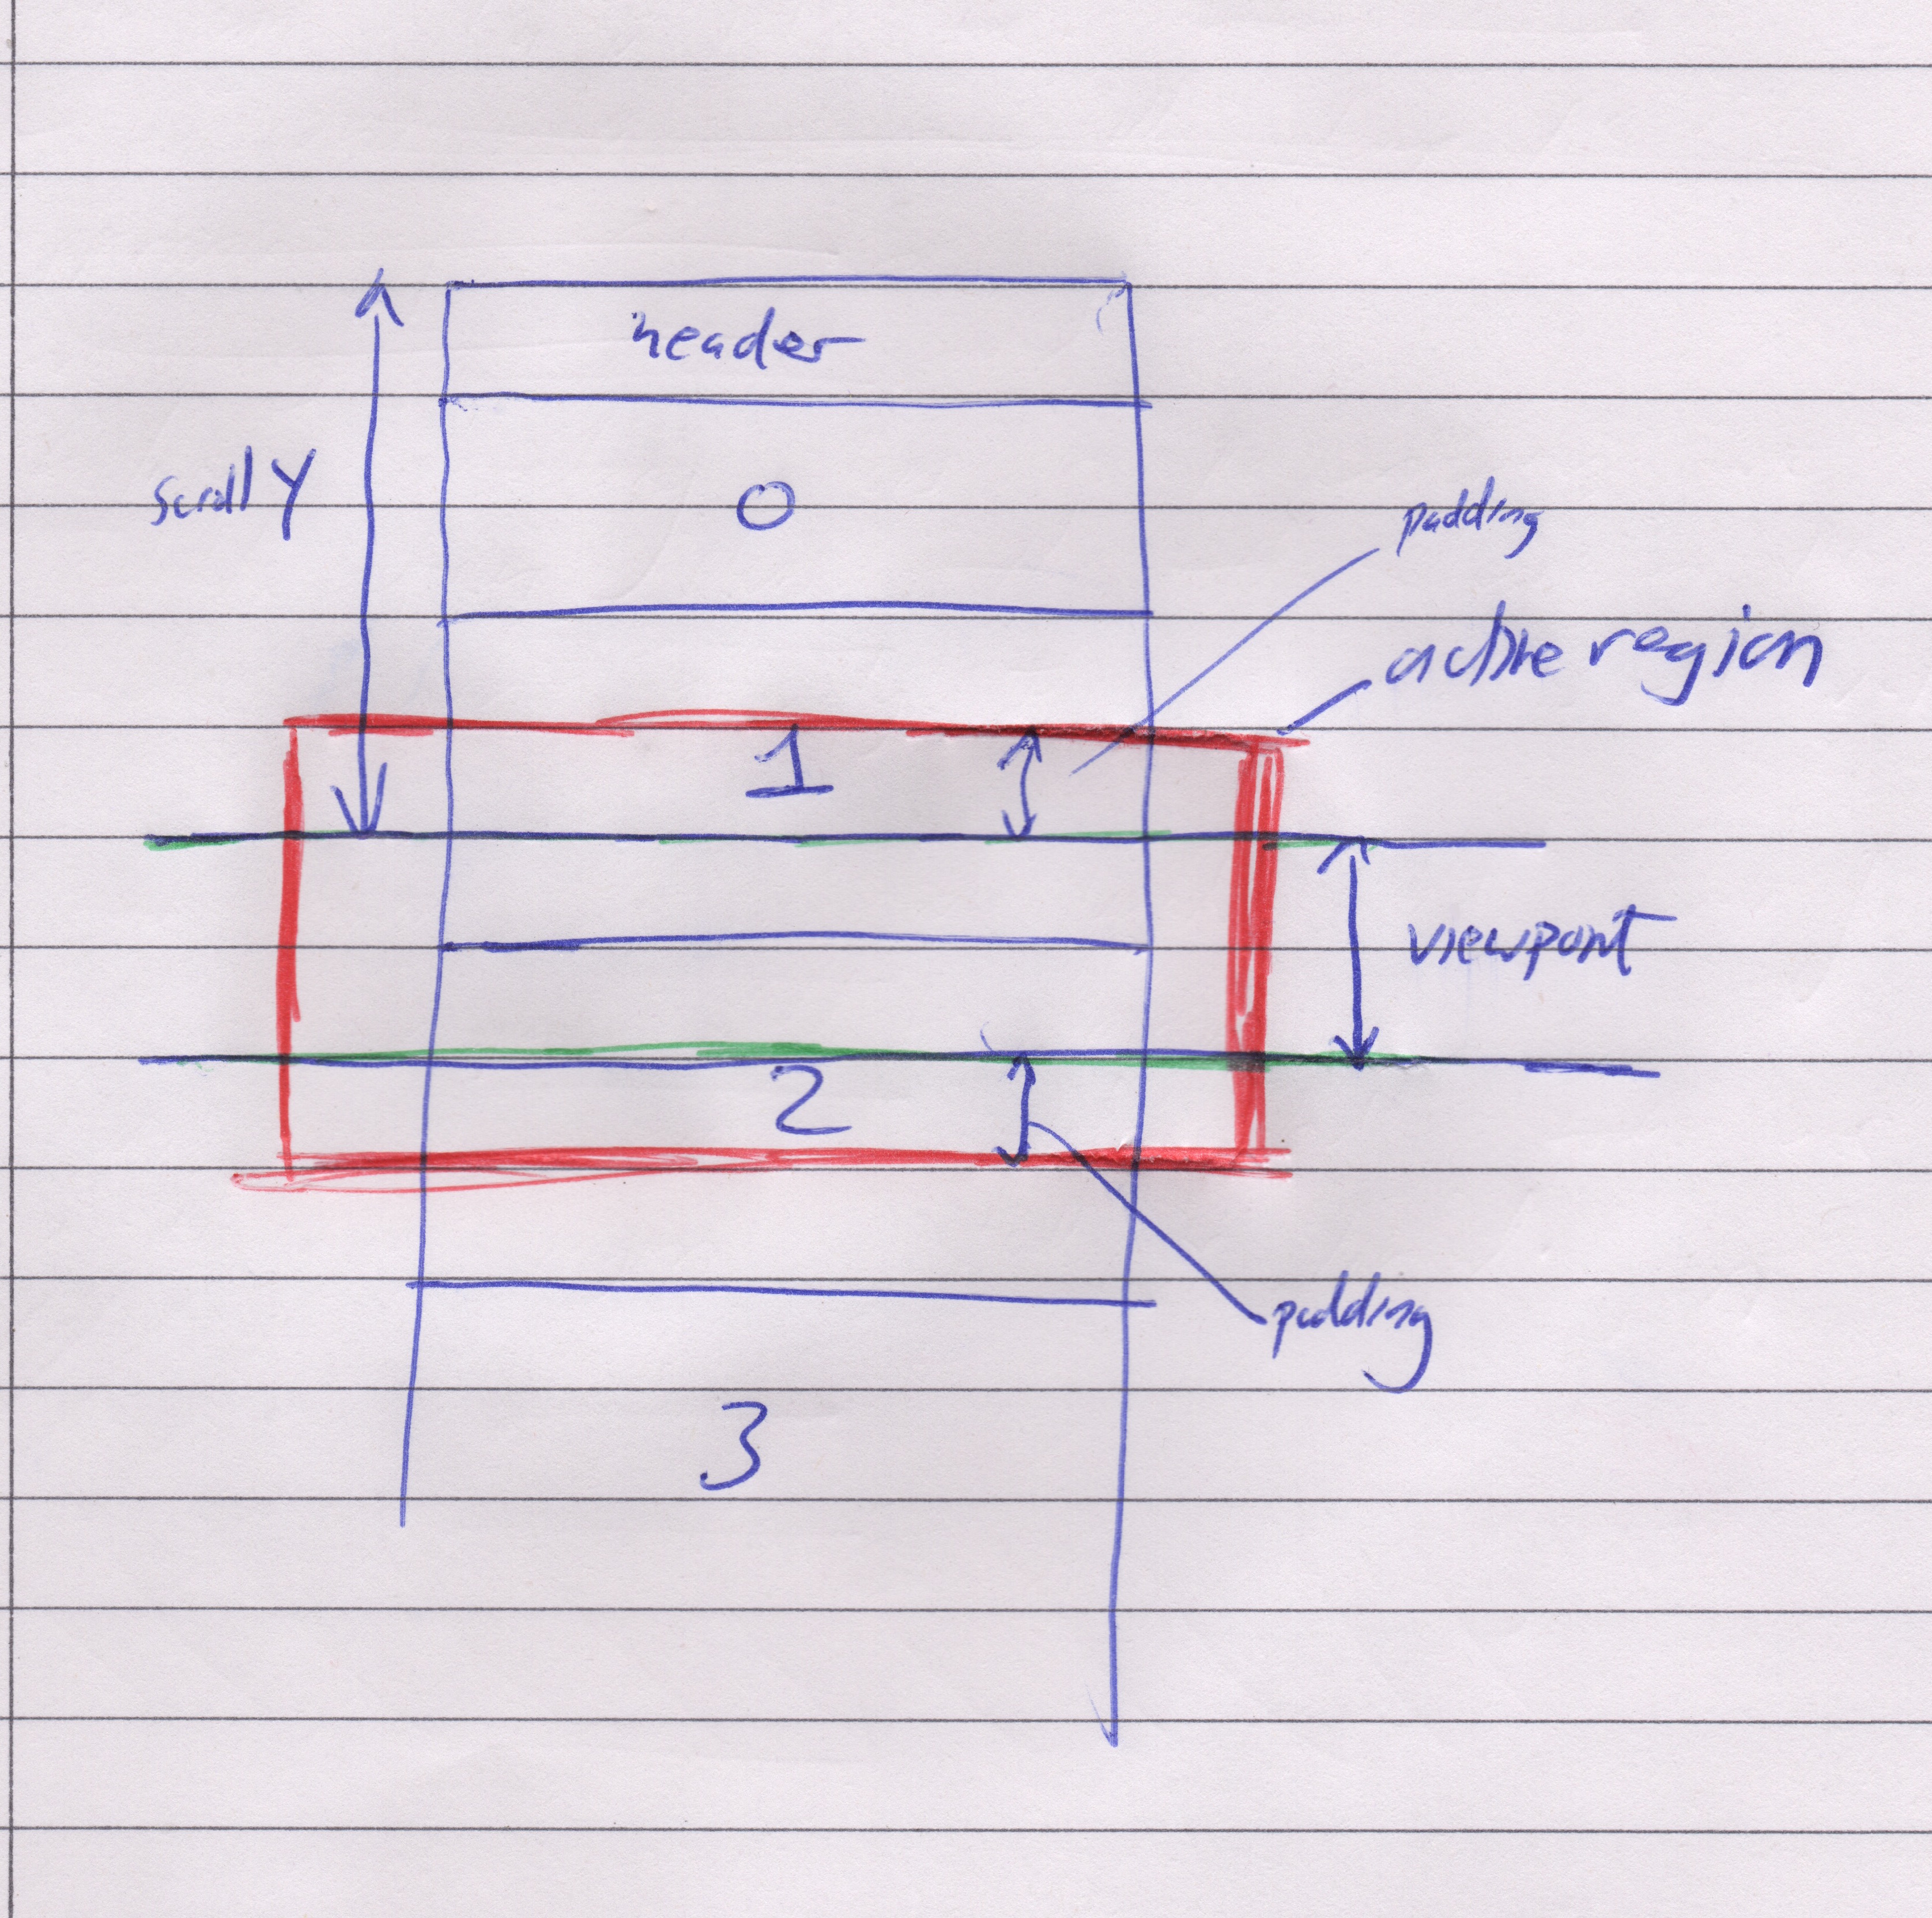 header
scrollY
0
padding
active region
1
viewport
2
padding
3